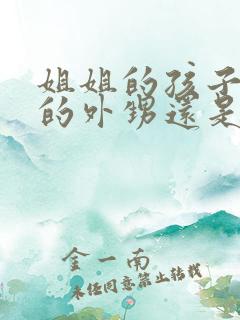 姐姐的孩子
的外甥還是
金一南
未经同意禁止转载